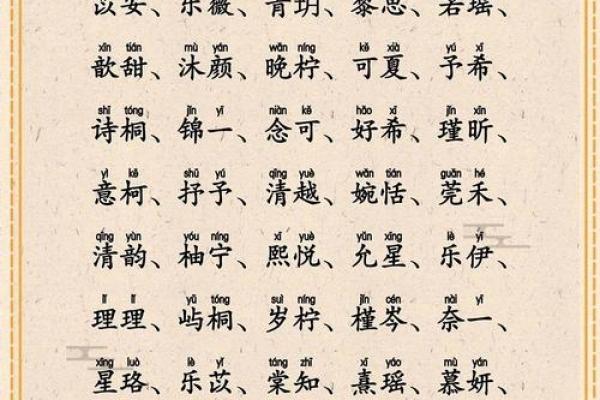 苡安、乐薇、青玥、黎思、若瑶、
xīn tián mù yán wǎn níng kě xià yú xī
歆甜、沐颜、晚柠、可夏、予希、
shī tóng jǐn yī niàn kě hǎo xī jǐn xīn
诗桐、锦一、念可、好希、瑾昕、
yì kē shū yú qīng yuè wǎn tián guān hé
意柯、抒予、清越、婉恬、莞禾、
qīng yùn yóu níng xī yuè yǔn xīng lè yī
清韵、柚宁、熙悦、允星、乐伊、
lǐ lǐ yǔ tóng suì níng jǐn cén nài yī
理理、屿桐、岁柠、槿岑、奈一、
xīng luò lè yǐ táng zhī xī yáo mù yán
星珞、乐苡、棠知、熹瑶、慕妍、